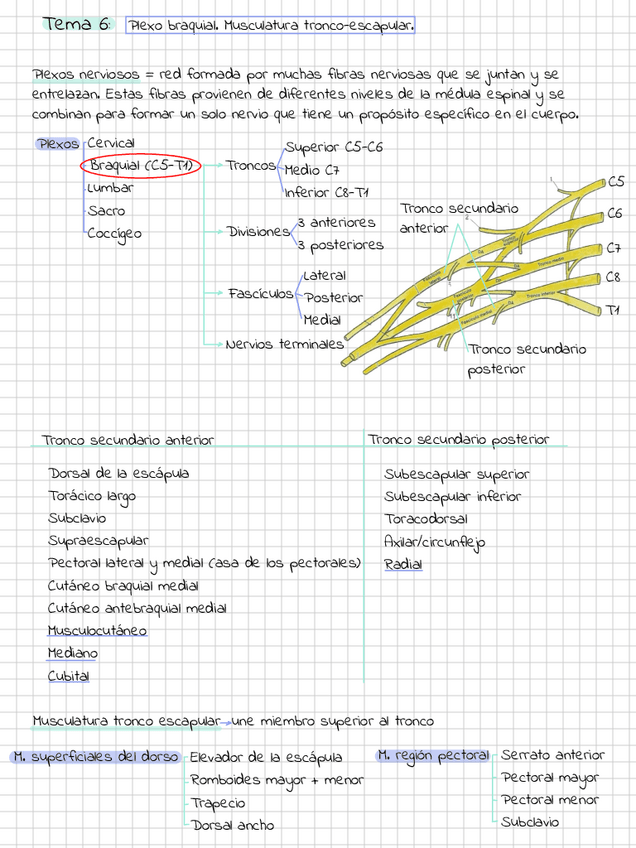 Tema 6: Plexo braquial. Musculatura tronco-escapular.
Plexos nerviosos = red formada por muchas fibras nerviosas que se juntan y se
entrelazan. Estas fibras provienen de diferentes niveles de la médula espinal y se
combinan para formar un solo nervio que tiene un propósito específico en el cuerpo.
Plexos
Cervical
Braquial (C5-T1)
Lumbar
Sacro
Coccígeo
Troncos
Superior C5-C6
Medio C7
Inferior C8-T1
Divisiones
3 anteriores
3 posteriores
Fascículos
Lateral
Posterior
Medial
Nervios terminales
Tronco secundario
anterior
C5
C6
C7
C8
T1
Tronco medio
Tronco inferior
Tronco secundario
posterior
Tronco secundario anterior
Dorsal de la escápula
Torácico largo
Subclavio
Supraescapular
Pectoral lateral y medial (asa de los pectorales)
Cutáneo braquial medial
Cutáneo antebraquial medial
Musculocutáneo
Mediano
Cubital
Tronco secundario posterior
Subescapular superior
Subescapular inferior
Toracodorsal
Axilar/circunflejo
Radial
Musculatura tronco escapular→une miembro superior al tronco
M. superficiales del dorso
Elevador de la escápula
Romboides mayor + menor
Trapecio
Dorsal ancho
M. región pectoral
Serrato anterior
Pectoral mayor
Pectoral menor
Subclavio